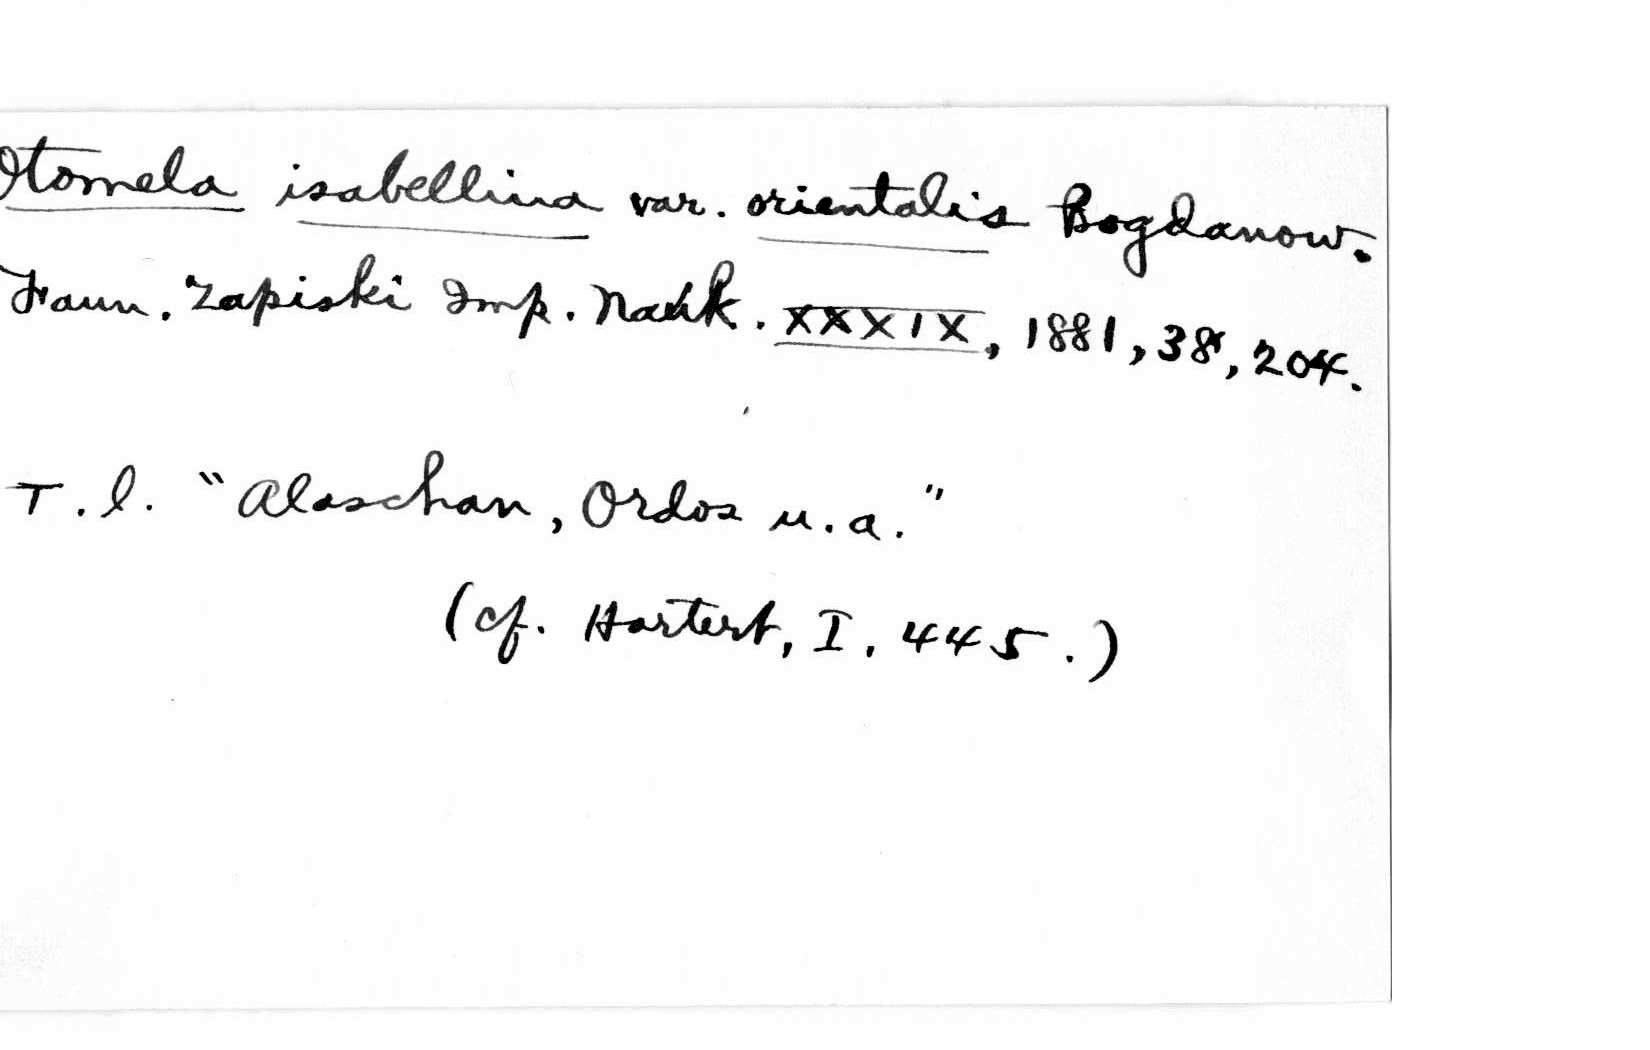 Otomela isabellina var. orientalis Bogdanow.
Faun. Zapiski Imp. Nauk. XXXIX, 1881, 38, 204.
T. l. "Alaschan, Ordos u. a."
(cf. Hartert, I, 445.)